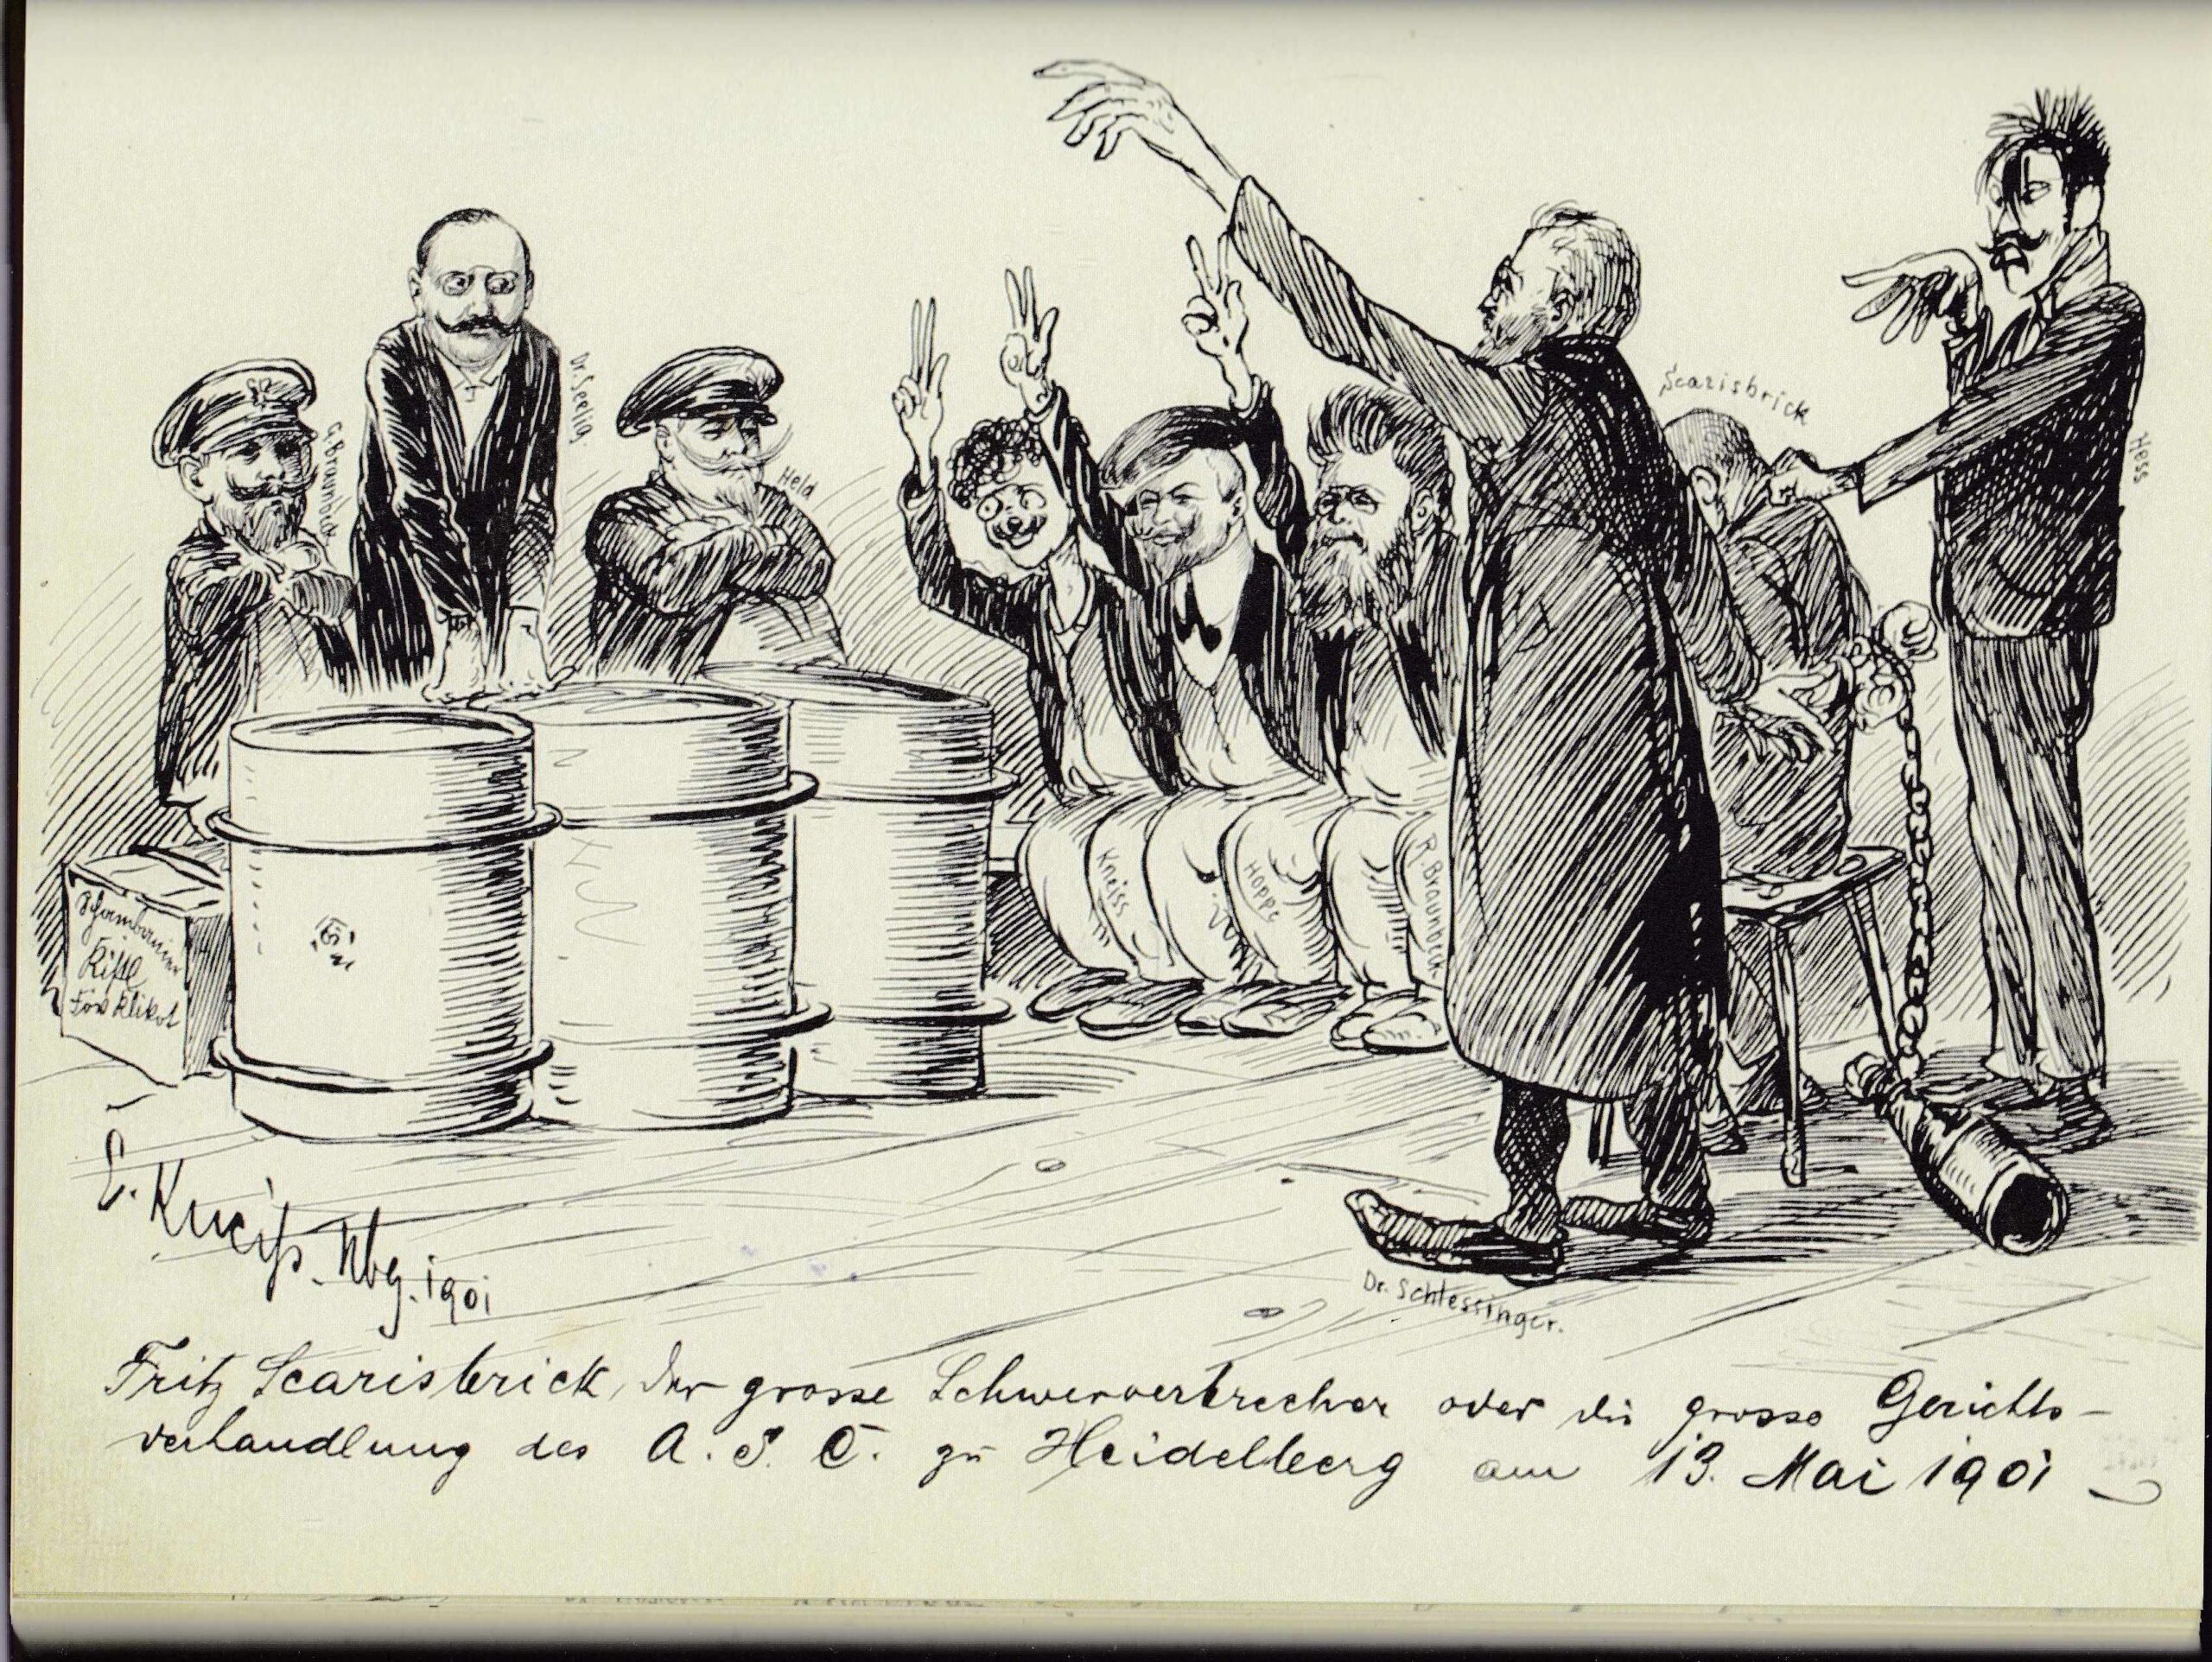 G. Braunbeck
Dr. Seelig.
Held
Scarisbrick
Hess
Kneiss
Hoppe
R. Braunbeck
Kistl
Klikot
E. Kneiß. Nbg. 1901
Dr. Schlessinger.
Fritz Scarisbrick, der grosse Schwerverbrecher oder die grosse Gerichts-
verhandlung des A. S. C. zu Heidelberg am 13. Mai 1901